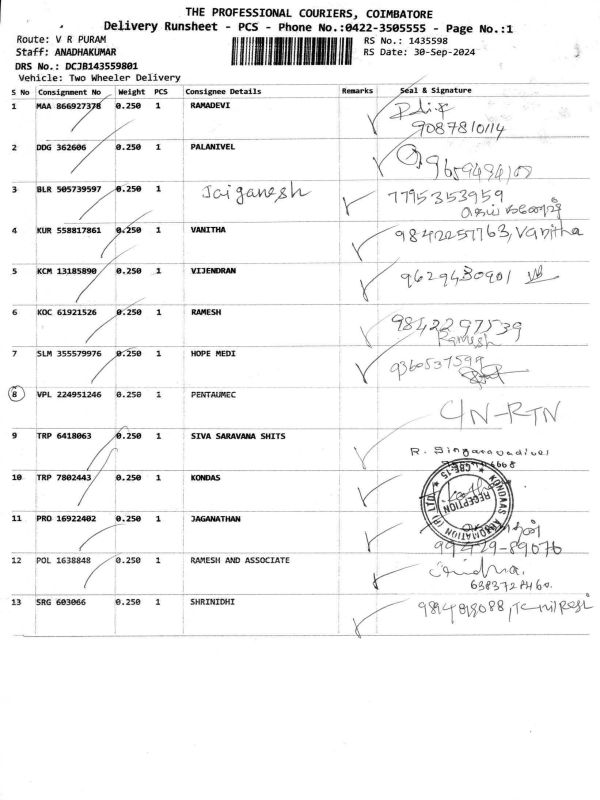 THE PROFESSIONAL COURIERS, COIMBATORE
Delivery Runsheet - PCS - Phone No.:0422-3505555 - Page No.:1
Route: V R PURAM RS No.: 1435598
Staff: ANADHAKUMAR RS Date: 30-Sep-2024
DRS No.: DCJB143559801
Vehicle: Two Wheeler Delivery
S No Consignment No Weight PCS Consignee Details Remarks Seal & Signature
1 MAA 866927378 0.250 1 RAMADEVI
9087810114
2 DDG 362606 0.250 1 PALANIVEL
3 BLR 505739597 0.250 1 Jaiganesh 7795353959
4 KUR 558817861 0.250 1 VANITHA 9842257763, Vanitha
5 KCM 13185890 0.250 1 VIJENDRAN 9629430901
6 KOC 61921526 0.250 1 RAMESH 9842297539
Ramesh
7 SLM 355579976 0.250 1 HOPE MEDI 9360537599
8 VPL 224951246 0.250 1 PENTAUMEC
C/N-RTN
9 TRP 6418063 0.250 1 SIVA SARAVANA SHITS R. Singaravadivel
10 TRP 7802443 0.250 1 KONDAS
KONDAAS AUTOMATION (P) LTD. * CBE-15 *
RECEPTION
11 PRO 16922402 0.250 1 JAGANATHAN
99429-89076
12 POL 1638848 0.250 1 RAMESH AND ASSOCIATE
13 SRG 603066 0.250 1 SHRINIDHI